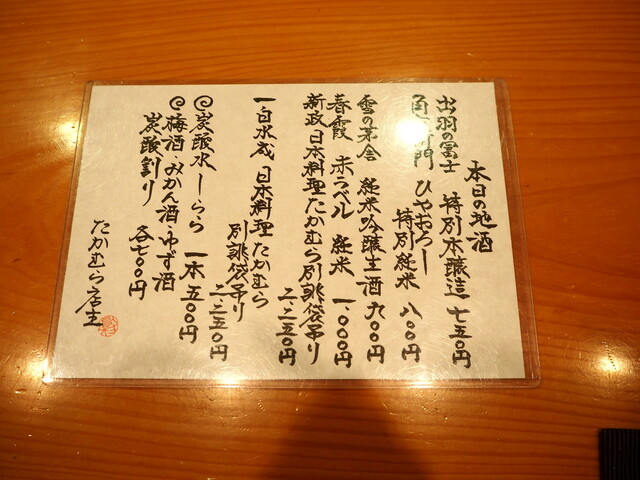 本日の地酒
出羽の冨士 特別本醸造 七五〇円
角 門 ひやおろし
特別純米 八〇〇円
雪の茅舎 純米吟醸生酒 九〇〇円
春霞 赤ラベル 純米 一、〇〇〇円
新政 日本料理たかむら別誂袋吊り
二、二五〇円
一白水成 日本料理たかむら
別誂袋吊り
二、二五〇円
◎炭酸水 しらら 一本 五〇〇円
◎梅酒・みかん酒・ゆず酒
炭酸割り 各七〇〇円
たかむら店主